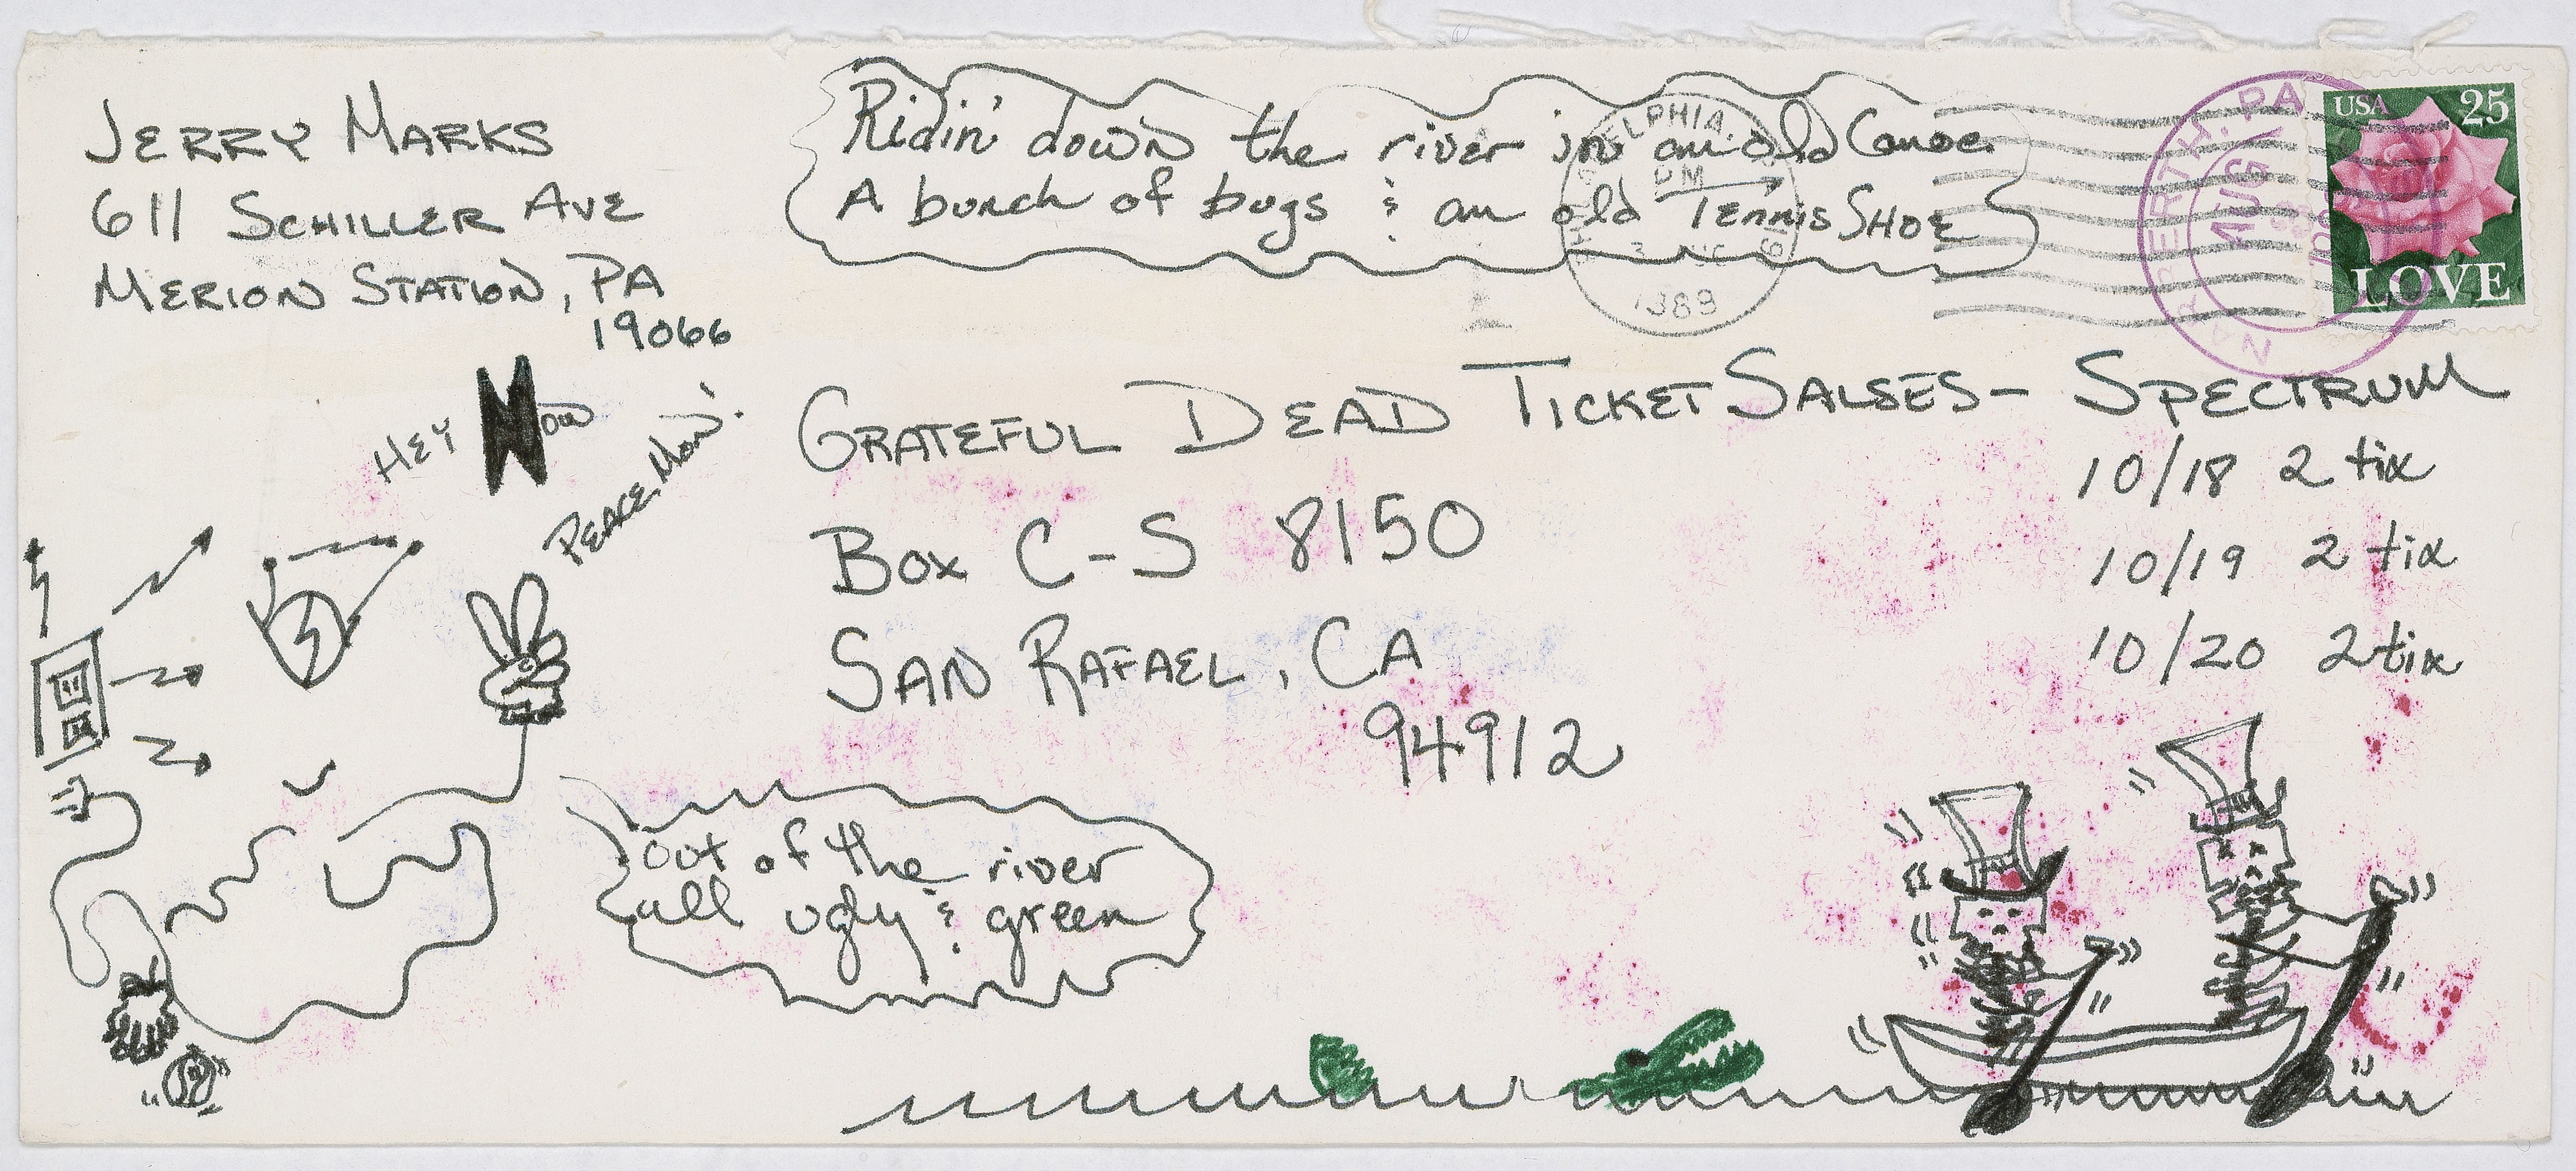 JERRY MARKS
611 SCHILLER AVE
MERION STATION, PA
19066
Ridin' down the river in an old Canoe
A bunch of bugs & an old Tennis SHOE
PM
1989
NARBERTH, PA
AUG
USA 25
LOVE
HEY NOW
PEACE, Mon!
GRATEFUL DEAD TICKET SALSES - SPECTRUM
10/18 2 tix
BOX C-S 8150
10/19 2 tix
SAN RAFAEL, CA
10/20 2 tix
94912
out of the river
all ugly & green